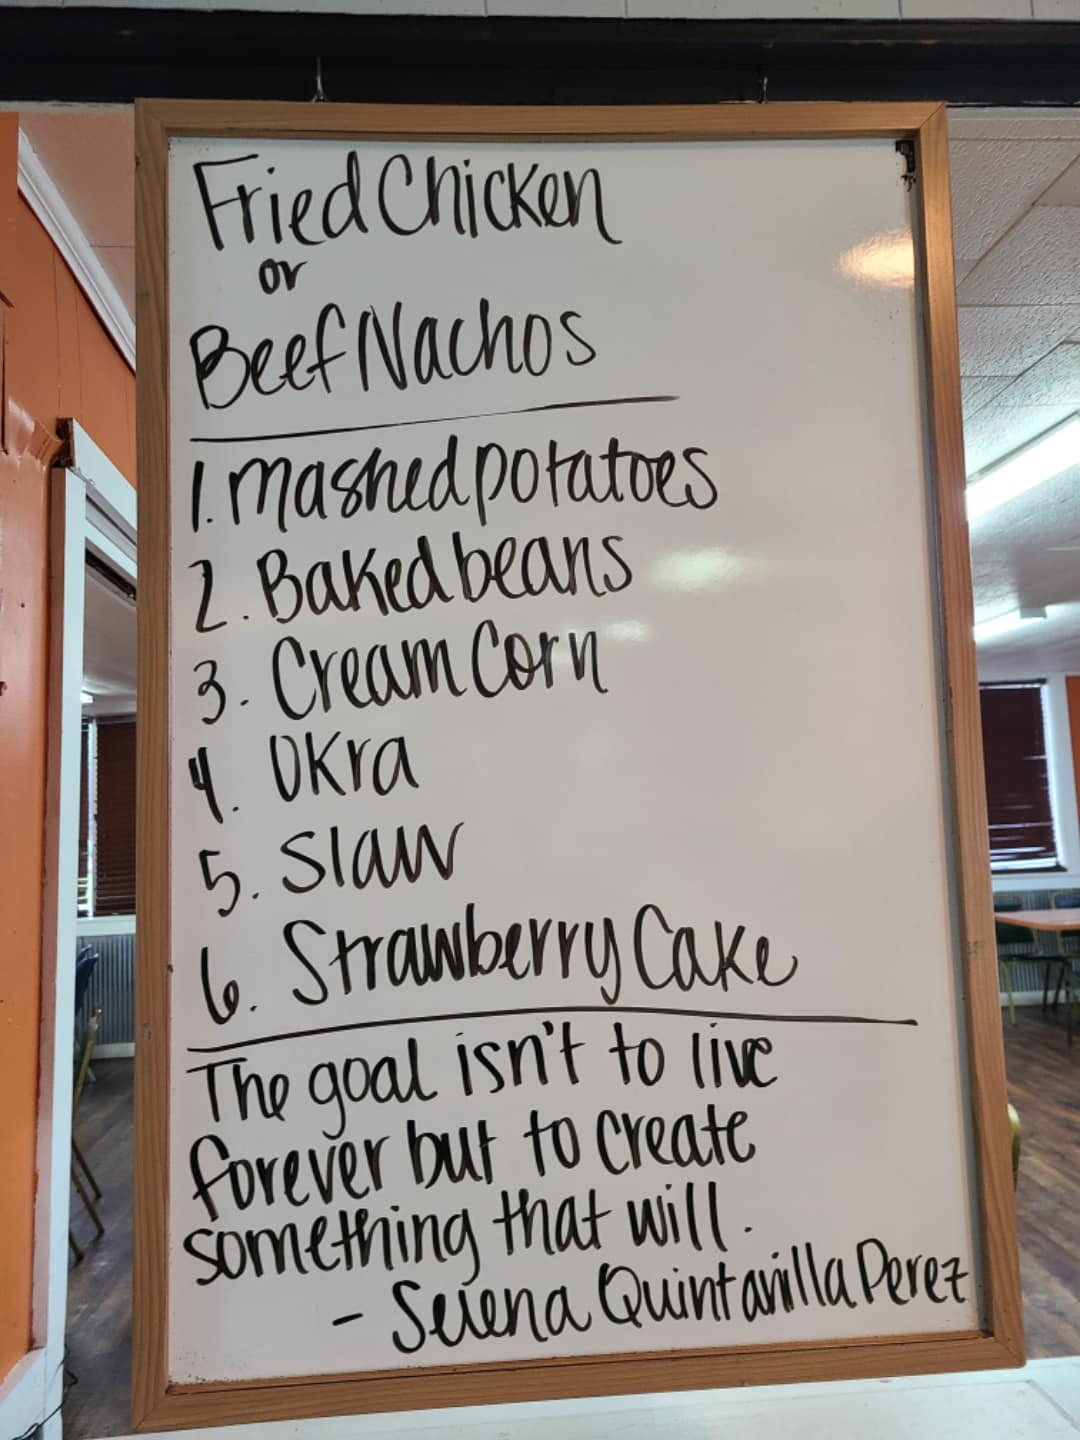 Fried Chicken
or
Beef Nachos
1. Mashed potatoes
2. Baked beans
3. Cream Corn
4. Okra
5. Slaw
6. Strawberry Cake
The goal isn't to live
forever but to create
something that will.
- Selena Quintanilla Perez